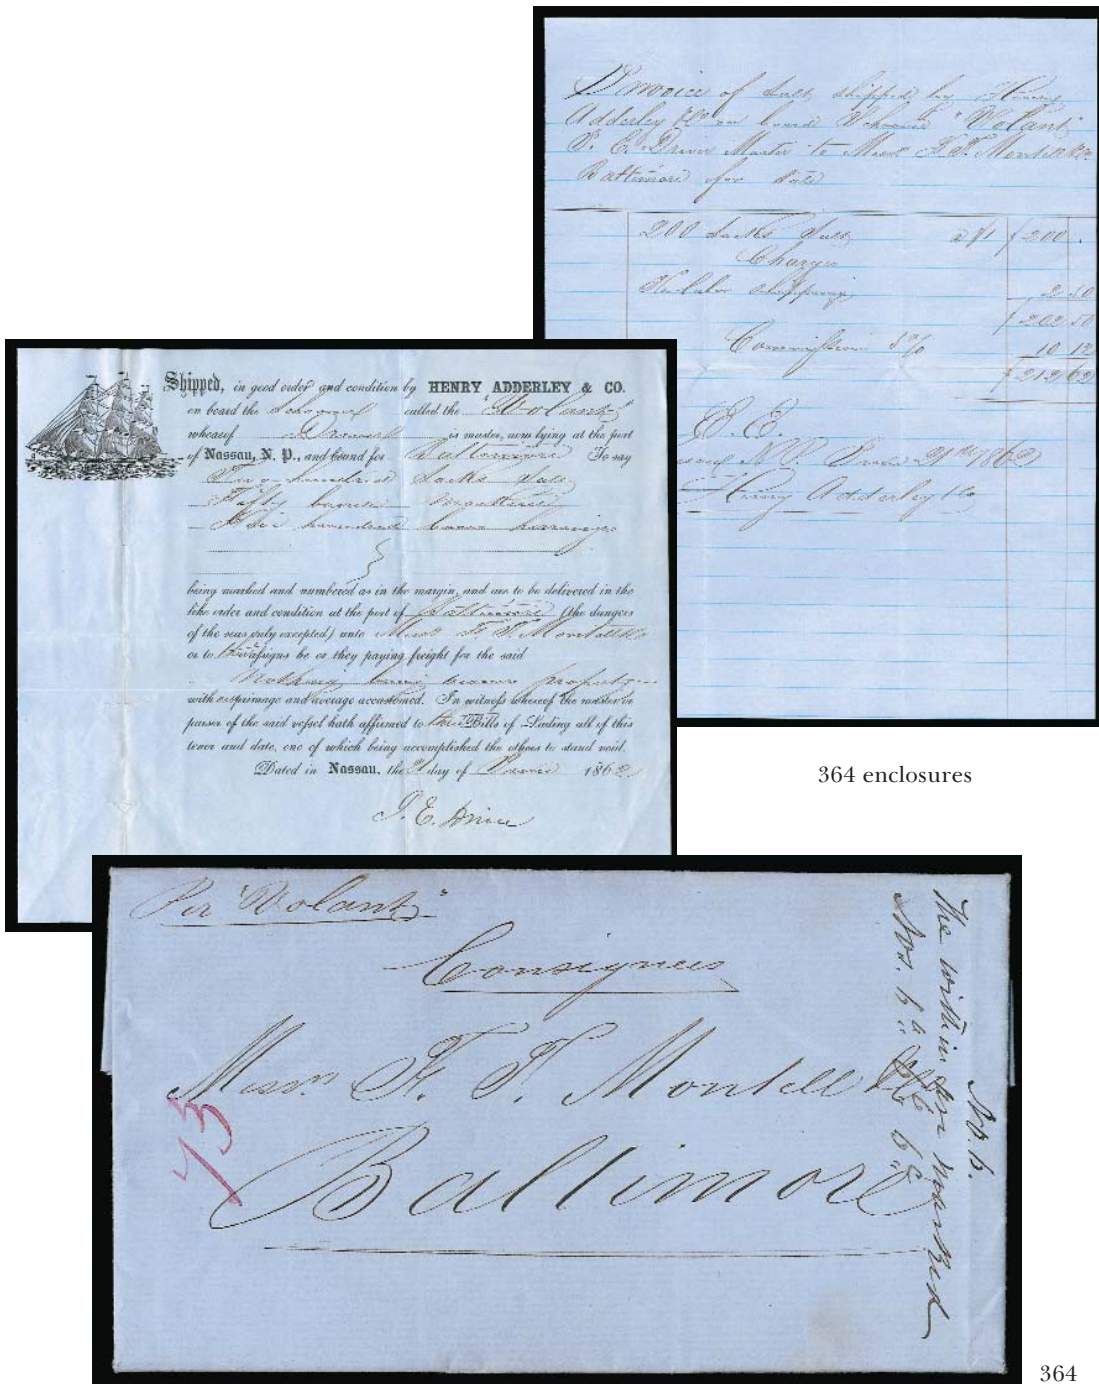 Invoice of Salt shipped by Henry
Adderley & Co on board Schooner "Volant"
Master to Messrs F. T. Montell & Co
Baltimore for sale
200 Sacks Salt a $1 $ 200.
Charges
shipping 2 50
$ 202 50
Commission 5 % 10 12
$ 212 62
E. E.
N. P. 21st 1862
Henry Adderley & Co
Shipped, in good order and condition by HENRY ADDERLEY & CO.
on board the Schooner called the "Volant"
whereof is master, now lying at the port
of Nassau, N. P., and bound for Baltimore To say
Two hundred Sacks Salt
Fifty barrels
hundred
being marked and numbered as in the margin, and are to be delivered in the
like order and condition at the port of Baltimore (the dangers
of the seas only excepted) unto Messrs F. T. Montell & Co
or to their assigns he or they paying freight for the said
Nothing being owners property
with primage and average accustomed. In witness whereof the master or
purser of the said vessel hath affirmed to three Bills of Lading all of this
tenor and date, one of which being accomplished the others to stand void.
Dated in Nassau, the 21 day of 1862
364 enclosures
Per "Volant"
Consignees
Messrs. F. T. Montell & Co
Baltimore
73
No. 6.
The within are marked
Nos. 6a
364